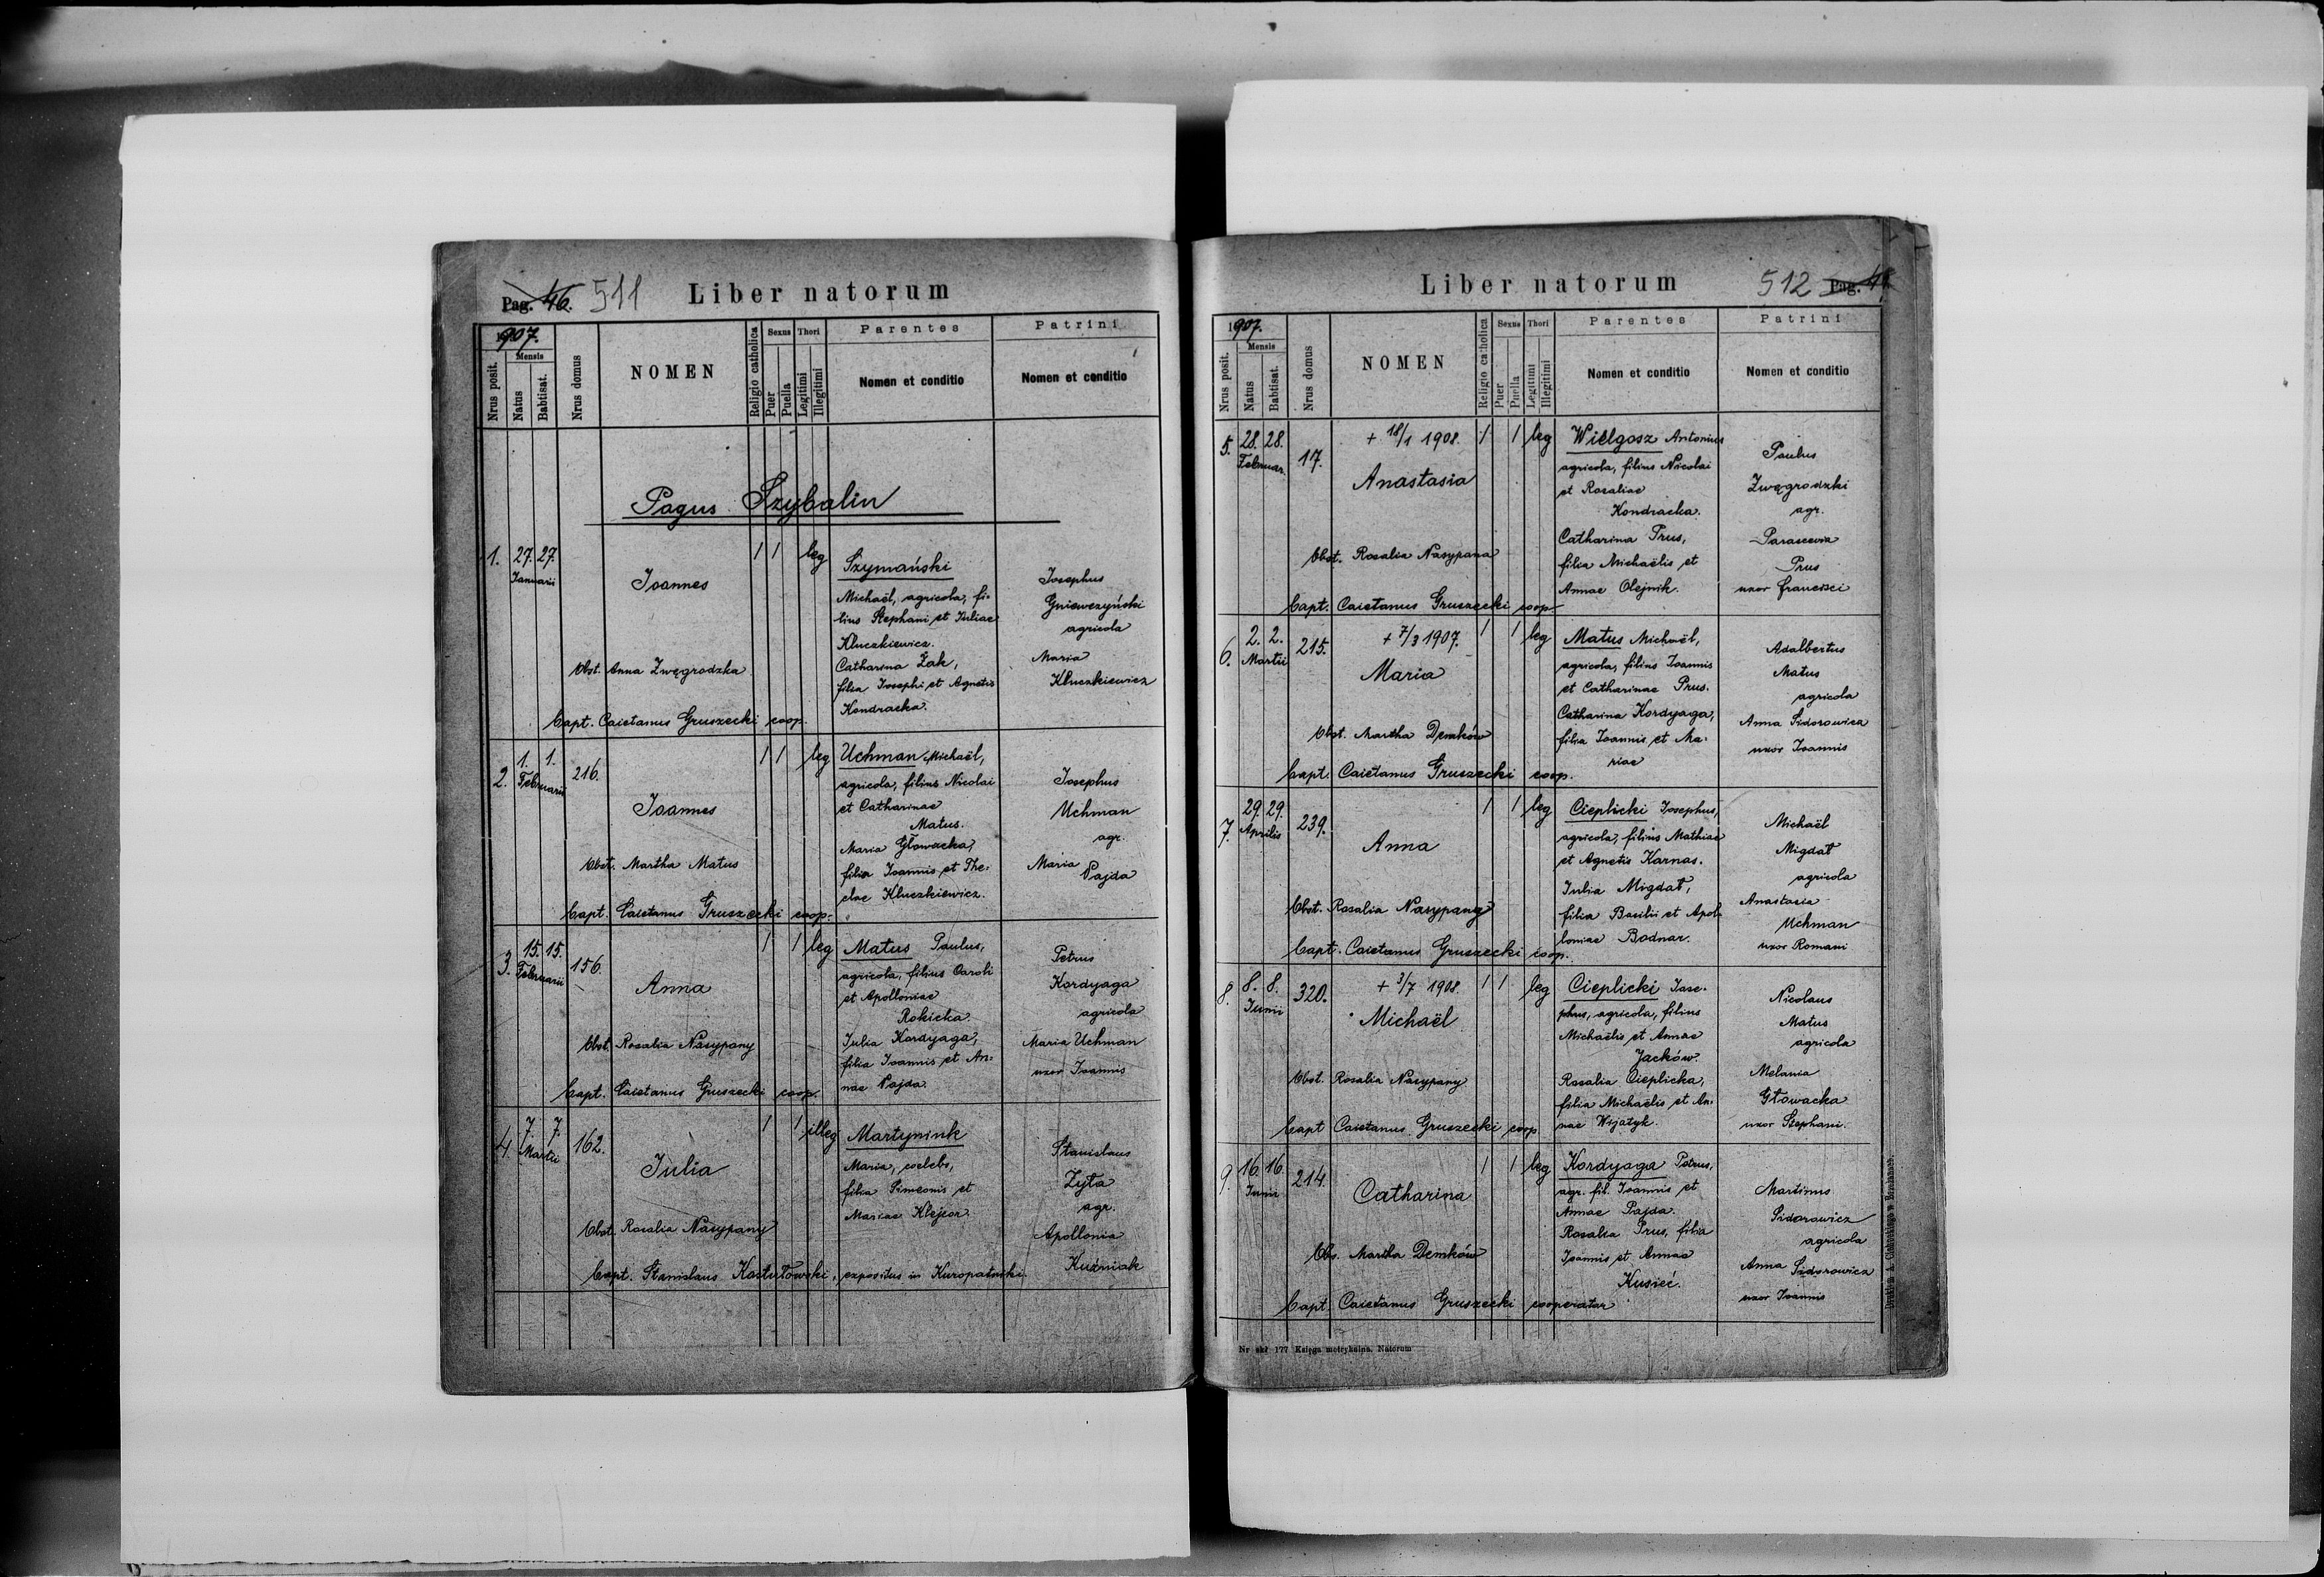 Pag. 46. 511 Liber natorum
1907.
Nrus posit.
Mensis
Natus
Babtisat.
Nrus domus
NOMEN
Religio catholica
Sexus
Puer
Puella
Thori
Legitimi
Illegitimi
Parentes
Nomen et conditio
Patrini
Nomen et conditio
Pagus Szybalin
1. 27. 27.
Januarii
Joannes
Obst. Anna Zwęgrodzka
1 1 leg
Szymański
Michaël, agricola, fi-
lius Stephani et Juliae
Kluczkiewicz.
Catharina Żak,
filia Josephi et Agnetis
Kondracka.
Josephus
Gniewczyński
agricola
Maria
Kluczkiewicz
bapt. Caietanus Gruszecki coop.
2. 1. 1.
Februarii
216.
Joannes
Obst. Martha Matus
1 1 leg
Uchman Michaël,
agricola, filius Nicolai
et Catharinae
Matus.
Maria Głowacka,
filia Joannis et The-
clae Kluczkiewicz.
Josephus
Uchman
agr.
Maria
Pajda
bapt. Caietanus Gruszecki coop.
3. 15. 15.
Februarii
156.
Anna
Obst. Rosalia Nasypany
1 1 leg
Matus Paulus,
agricola, filius Caroli
et Apolloniae
Rokicka.
Julia Kordyaga,
filia Joannis et An-
nae Pajda.
Petrus
Kordyaga
agricola
Maria Uchman
uxor Joannis
bapt. Caietanus Gruszecki coop.
4. 7 7.
Martii
162.
Julia
Obst. Rosalia Nasypany
1 1 illeg
Martyniuk
Maria, coelebs,
filia Simeonis et
Mariae Klejzor.
Stanislaus
Zyła
agr.
Apollonia
Kuźniak
bapt. Stanislaus Kostułowski, expositus in Kuropatniki.
Liber natorum 512 Pag.
1907.
Nrus posit.
Mensis
Natus
Babtisat.
Nrus domus
NOMEN
Religio catholica
Sexus
Puer
Puella
Thori
Legitimi
Illegitimi
Parentes
Nomen et conditio
Patrini
Nomen et conditio
5. 28. 28.
Februar.
17.
+ 18/1 1908.
Anastasia
Obst. Rosalia Nasypana
1 1 leg
Wielgosz Antonius
agricola, filius Nicolai
et Rosaliae
Kondracka.
Catharina Prus,
filia Michaëlis et
Annae Olejnik.
Paulus
Zwęgrodzki
agr.
Parascevia
Prus
uxor Francisci
bapt. Caietanus Gruszecki coop.
6. 2. 2.
Martii
215.
+ 7/3 1907.
Maria
Obst. Martha Demków
1 1 leg
Matus Michaël,
agricola, filius Joannis
et Catharinae Prus.
Catharina Kordyaga,
filia Joannis et Ma-
riae
Adalbertus
Matus
agricola
Anna Sidorowicz
uxor Joannis
bapt. Caietanus Gruszecki coop.
7. 29. 29.
Aprilis
239.
Anna
Obst. Rosalia Nasypany
1 1 leg
Cieplicki Josephus,
agricola, filius Mathiae
et Agnetis Karnas.
Julia Migdał,
filia Basilii et Apol-
loniae Bodnar.
Michaël
Migdał
agricola
Anastasia
Uchman
uxor Romani
bapt. Caietanus Gruszecki coop.
8. 8. 8.
Junii
320.
+ 3/7 1908.
Michaël
Obst. Rosalia Nasypany
1 1 leg
Cieplicki Jose-
phus, agricola, filius
Michaëlis et Annae
Jacków.
Rosalia Cieplicka,
filia Michaëlis et An-
nae Wijatyk.
Nicolaus
Matus
agricola
Melania
Głowacka
uxor Stephani.
bapt Caietanus Gruszecki coop
9. 16. 16.
Junii
214.
Catharina
Obs. Martha Demków
1 1 leg
Kordyaga Petrus,
agr. fil. Joannis et
Annae Pajda.
Rosalia Prus, filia
Joannis et Annae
Kusieć.
Martinus
Sidorowicz
agricola
Anna Sidorowicz
uxor Joannis
bapt. Caietanus Gruszecki cooperator
Nr skł 177 Księga metrykalna. Natorum